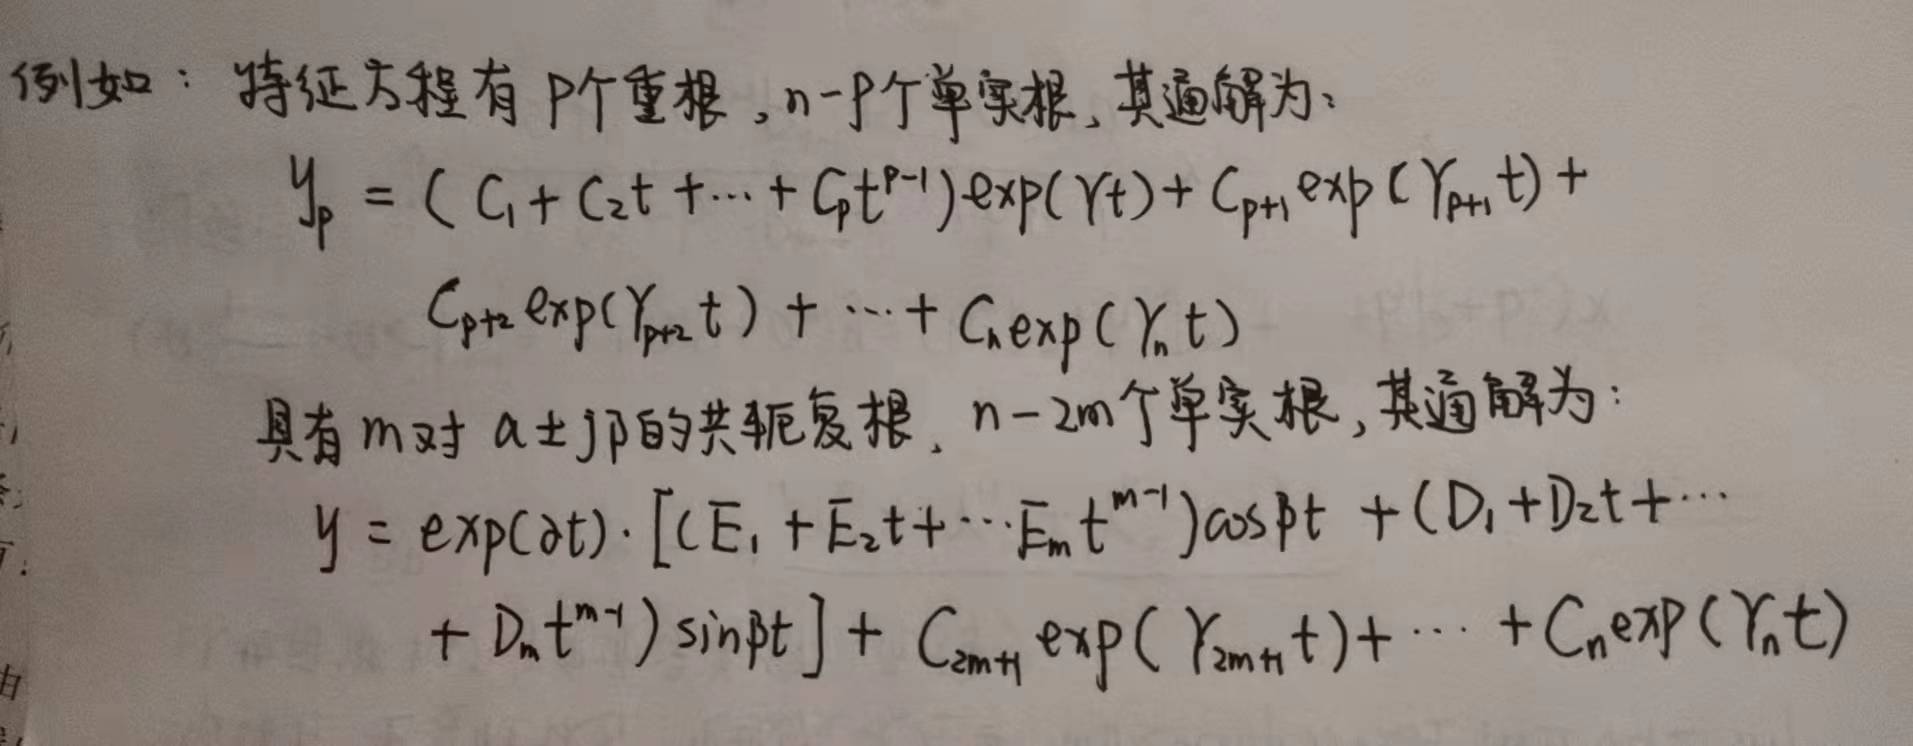 例如：特征方程有 P个重根,n-P个单实根,其通解为:
y_p = (C₁+C₂t+…+C_p t^{p-1})exp(γt)+C_{p+1}exp(γ_{p+1}t)+
C_{p+2}exp(γ_{p+2}t)+…+C_n exp(γ_n t)
具有m对 a±jβ的共轭复根、n-2m个单实根,其通解为:
y = exp(∂t)·[(E₁+E₂t+…E_m t^{m-1})cosβt+(D₁+D₂t+…
+D_m t^{m-1})sinβt]+C_{2m+1}exp(γ_{2m+1}t)+…+C_n exp(γ_n t)
由